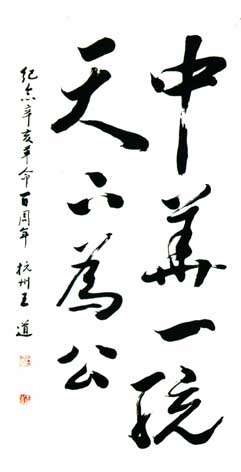 中華一統
天下為公
紀念辛亥革命百周年 杭州王道